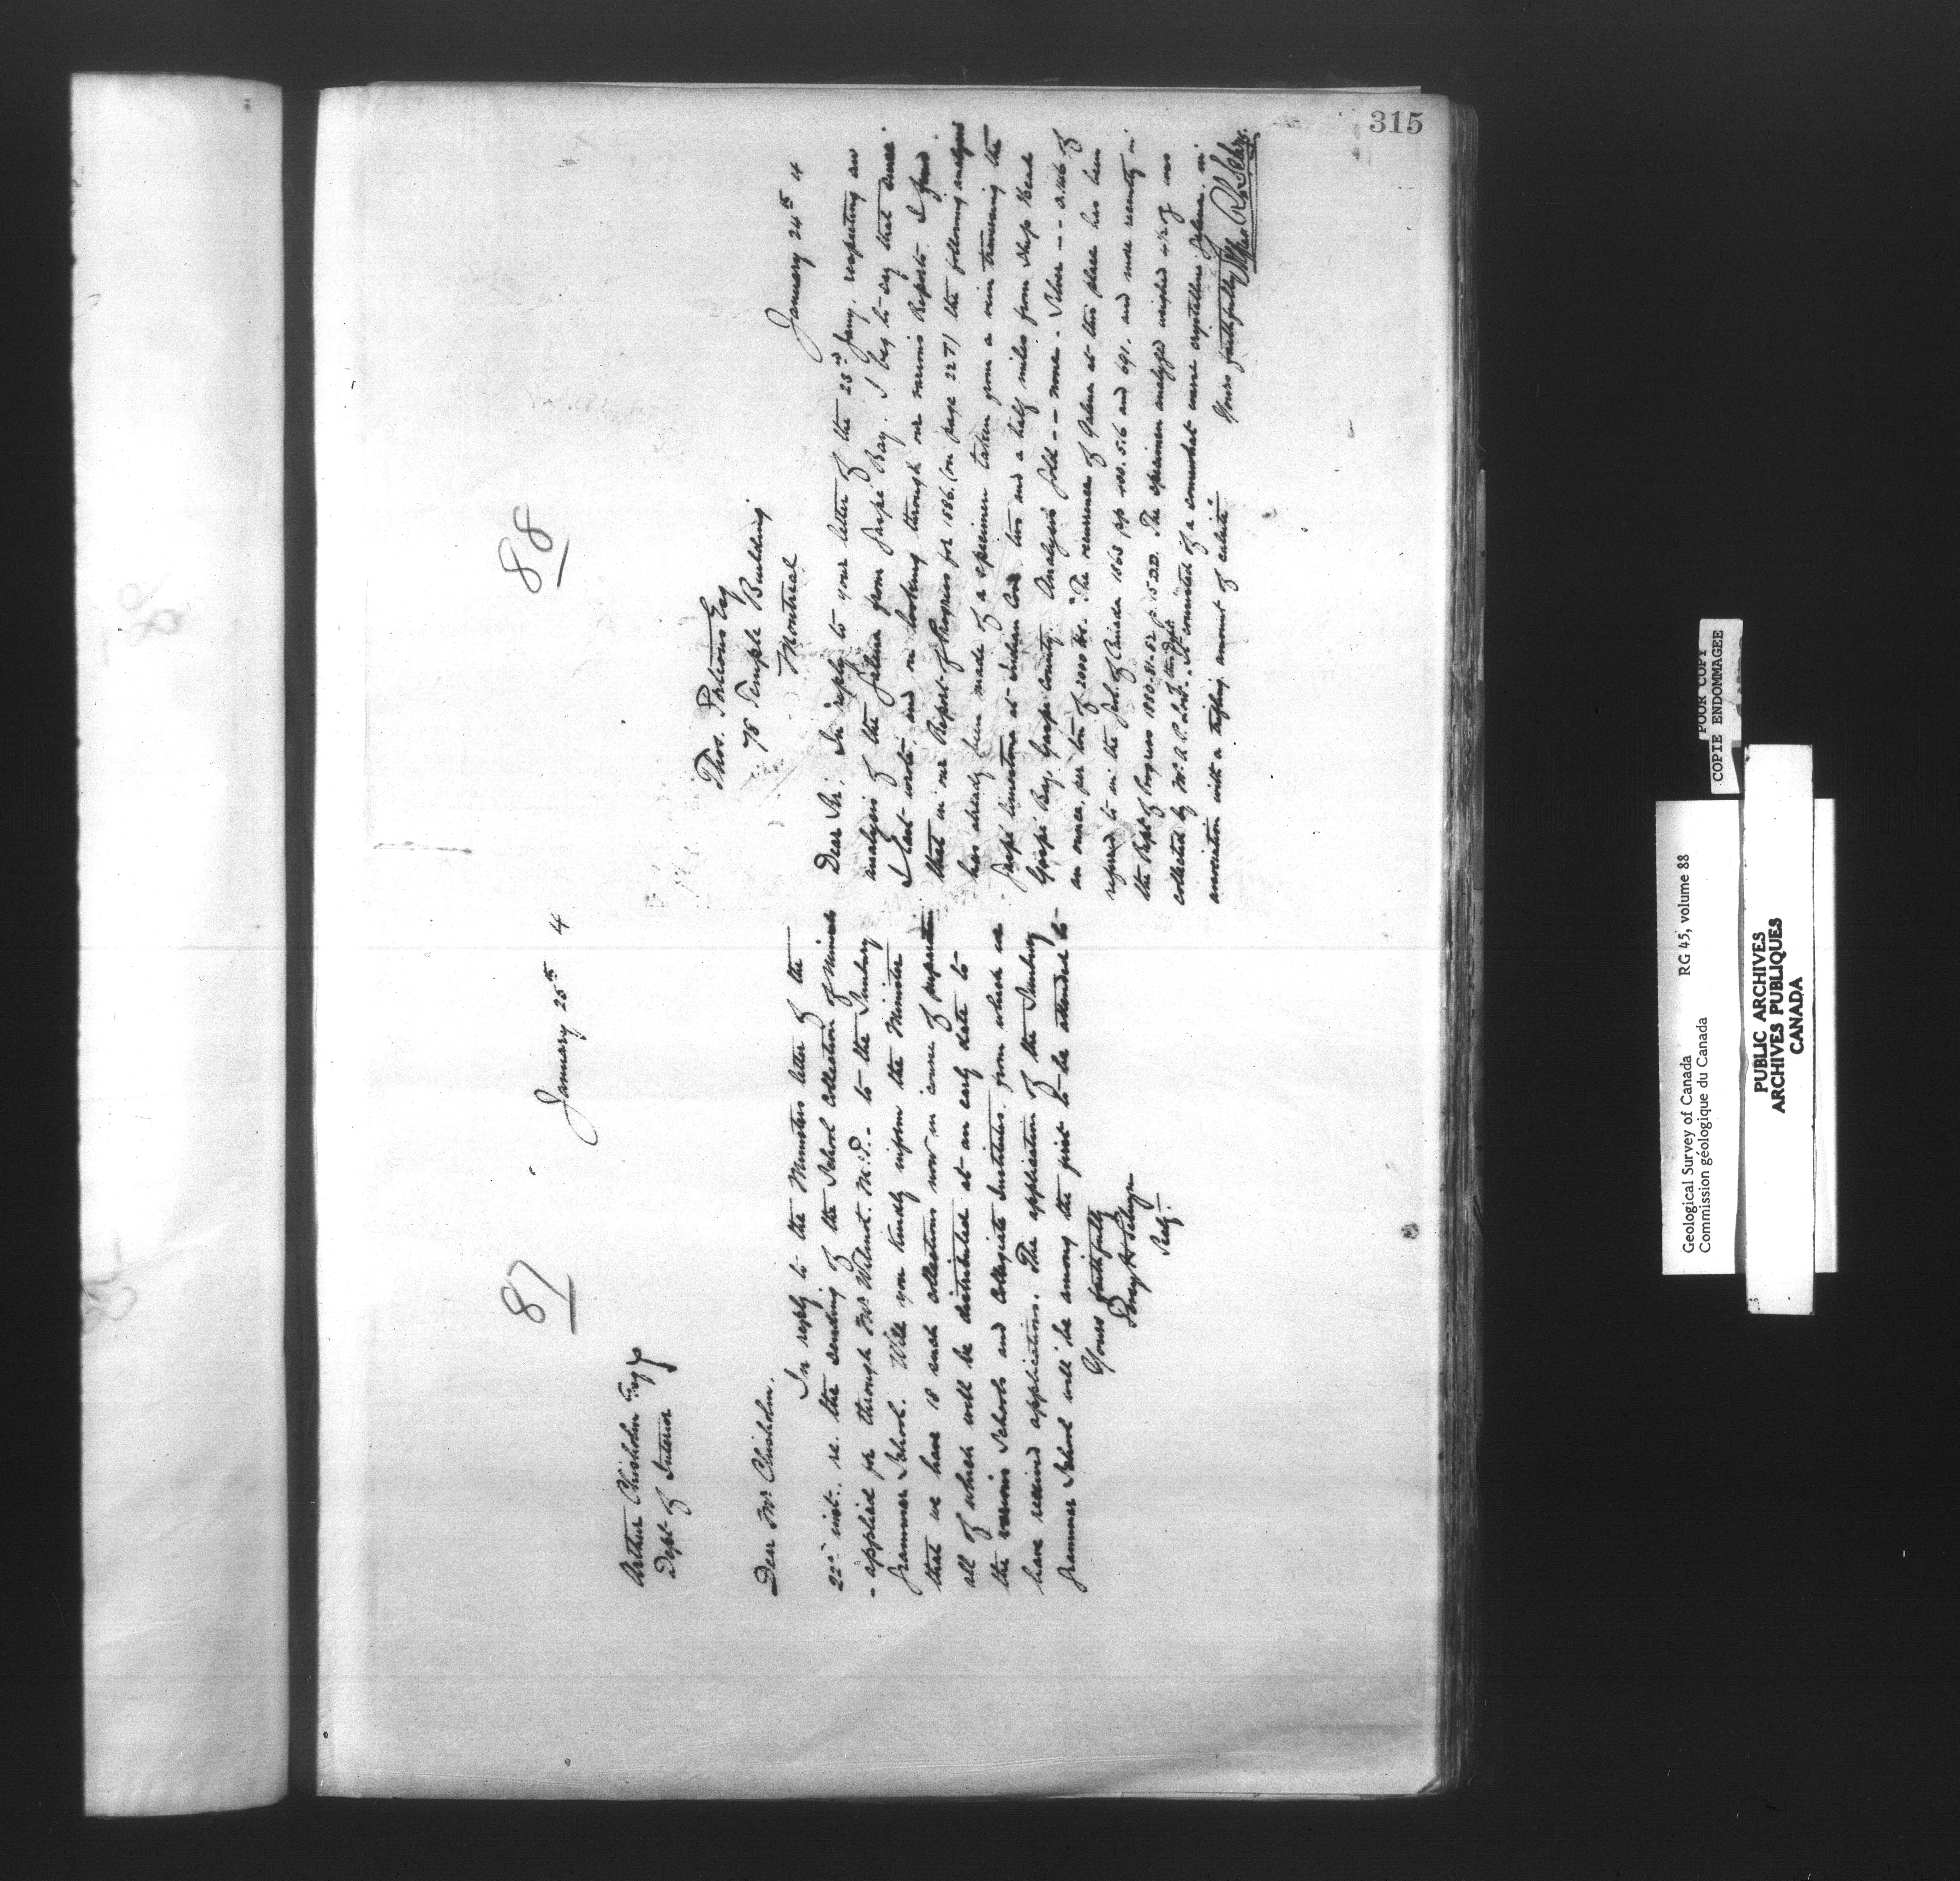 315
87
January 25th 4
Arthur Chisholm Esq
Dept of Interior
Dear Mr Chisholm.
In reply to the Ministers letter of the
22d inst. re. the sending of the School Collection of Minerals
- applied for through Mr Wilmot. M.P. - to the Sunbury
Grammar School. Will you kindly inform the Minister
that we have 18 such collections now in course of preparation
all of which will be distributed at an early date to
the various Schools and Collegiate Institutes, from which we
have received application. The application of the Sunbury
Grammar School will be among the first to be attended to
Yours faithfully
Percy H Selwyn
Secy.
88
January 24th 4
Thos.
78 Temple Building
Montreal
Dear Sir. In reply to your letter of the 23rd Jany. respecting an
analysis of the Galena from Gaspé Bay. I beg to say that since
I last wrote, and on looking through our various Reports I find
that in our Report of Progress for 1886. (on page 22T) the following analysis
has already been made of a specimen taken from a vein traversing the
Gaspé limestone at Indian Cove two and a half miles from Ship Head
Gaspé Bay. Gaspé County. Analysis Gold -- none. Silver --- 0.146 of
an ounce, per ton of 2000 lbs. "The occurrence of Galena at this place has been
referred to in the Geol. of Canada 1863 pp 400. 516 and 691. and more recently in
the Rept of Progress 1880-81-82 p. 15DD. The specimen analyzed weighed
collected by Mr A. P. Low. It consisted of a somewhat coarse crystalline galena in
association with a trifling amount of calcite"
Yours faithfully
Geological Survey of Canada
Commission géologique du Canada
RG 45, volume 88
PUBLIC ARCHIVES
ARCHIVES PUBLIQUES
CANADA
POOR COPY
COPIE ENDOMMAGEE